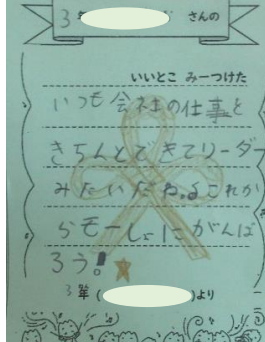 3年 さんの
いいとこ みーつけた
いつも会社の仕事を
きちんとできてリーダー
みたいだね。これか
らも一しょにがんば
ろう!
3年 ( )より